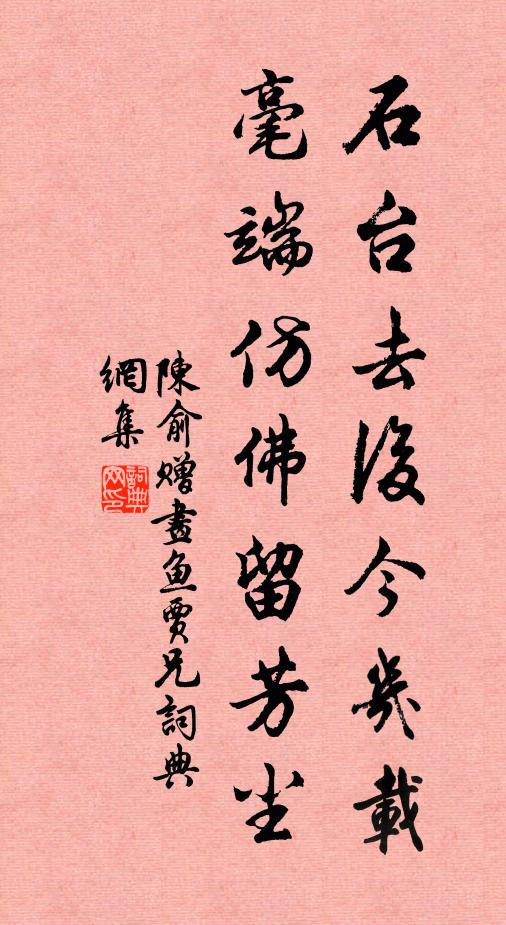 石台去後今幾載
毫端仿佛留芳尘
陳俞贈畫魚賈兄詞典
網集
詞典網印